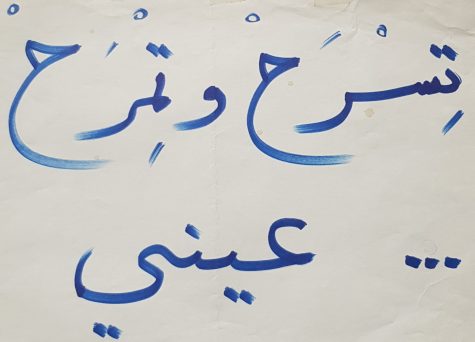 تِسْرَحْ وتِمْرَحْ
... عيني